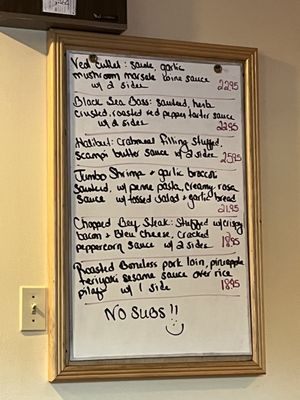 Veal Cutlet: sauté, garlic
mushroom marsala wine sauce
w/ 2 sides 22.95
Black Sea Bass: sautéed, herb
crusted, roasted red pepper tarter sauce
w/ 2 sides 22.95
Halibut: crabmeat filling stuffed,
scampi butter sauce w/ 2 sides 25.95
Jumbo Shrimp + garlic broccoli
sautéed, w/ penne pasta, creamy rosa
sauce w/ tossed salad + garlic bread
21.95
Chopped Beef Steak: Stuffed w/ crispy
bacon + Bleu cheese, cracked
peppercorn sauce w/ 2 sides 18.95
Roasted Boneless pork loin, pineapple
teriyaki sesame sauce over rice
pilaf w/ 1 side 18.95
NO SUBS!!